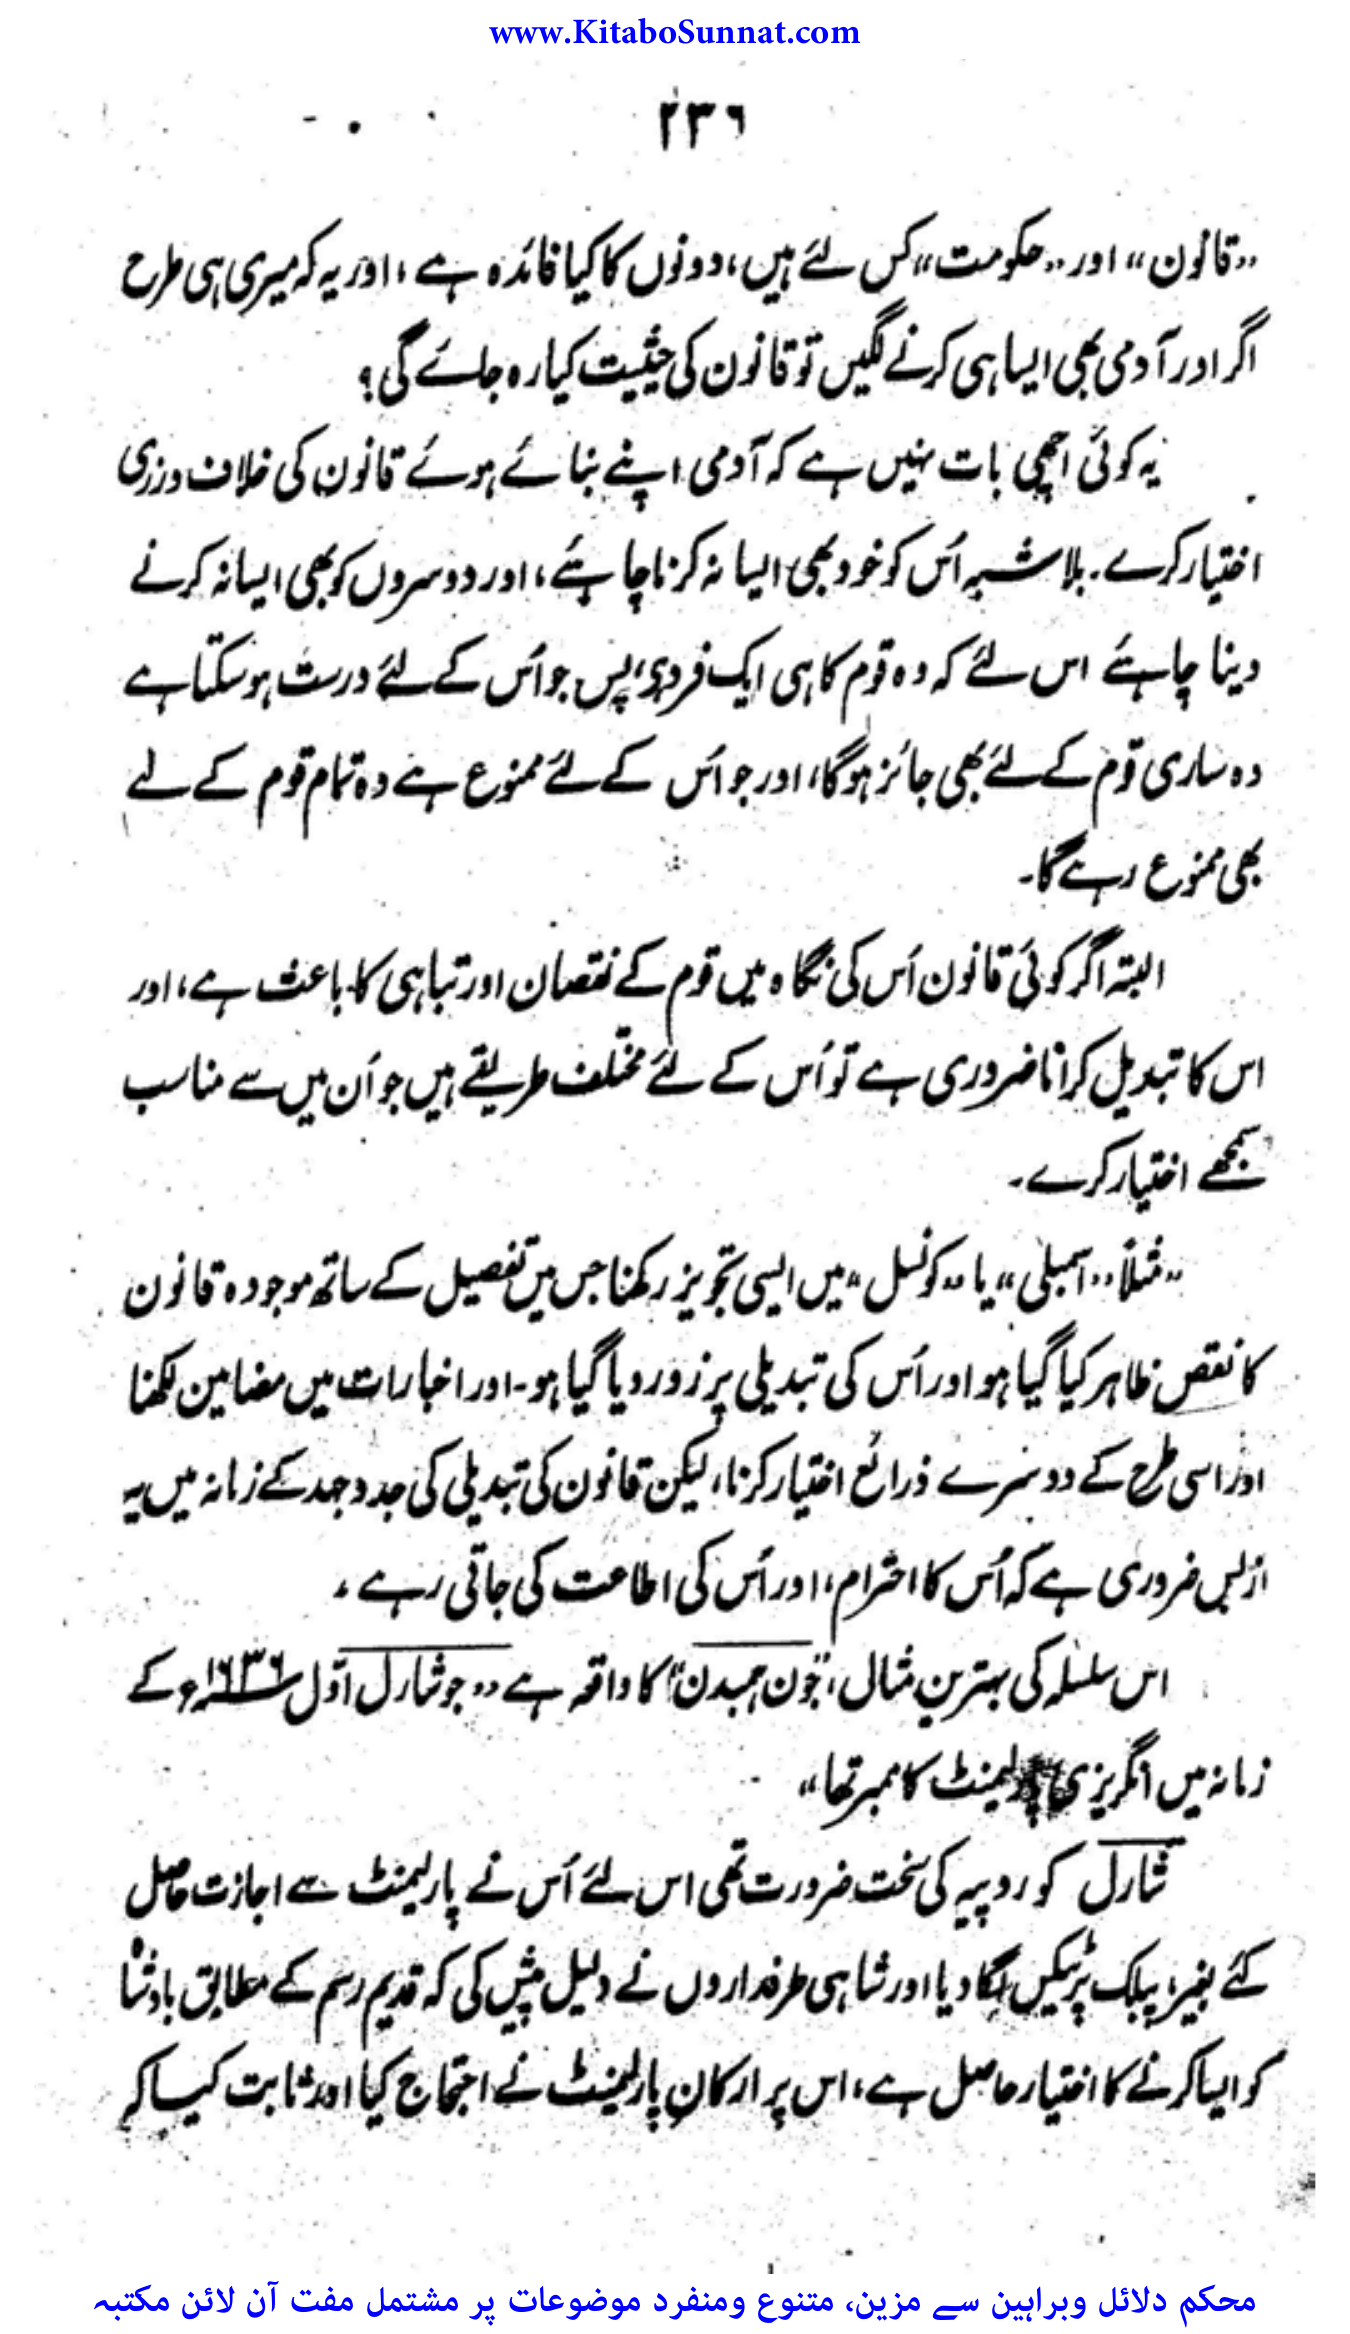 www.KitaboSunnat.com
۲۳۶
"قانون" اور "حکومت" کس لئے ہیں، دونوں کا کیا فائدہ ہے، اور یہ کہ میری ہی طرح
اگر اور آدمی بھی ایسا ہی کرنے لگیں تو قانون کی حیثیت کیا رہ جائے گی؟
یہ کوئی اچھی بات نہیں ہے کہ آدمی اپنے بنائے ہوئے قانون کی خلاف ورزی
اختیار کرے۔ بلاشبہ اُس کو خود بھی ایسا نہ کرنا چاہئے، اور دوسروں کو بھی ایسا نہ کرنے
دینا چاہئے اس لئے کہ وہ قوم کا ہی ایک فرد ہی، پس جو اُس کے لئے درست ہو سکتا ہے
وہ ساری قوم کے لئے بھی جائز ہوگا، اور جو اُس کے لئے ممنوع ہے وہ تمام قوم کے لے
بھی ممنوع رہے گا۔
البتہ اگر کوئی قانون اُس کی نگاہ میں قوم کے نقصان اور تباہی کا باعث ہے، اور
اس کا تبدیل کرانا ضروری ہے تو اُس کے لئے مختلف طریقے ہیں جو اُن میں سے مناسب
سمجھے اختیار کرے۔
"مثلاً "اسمبلی" یا "کونسل" میں ایسی تجویز رکھنا جس میں تفصیل کے ساتھ موجودہ قانون
کا نقص ظاہر کیا گیا ہو اور اُس کی تبدیلی پر زور دیا گیا ہو۔ اور اخبارات میں مضامین لکھنا
اور اسی طرح کے دوسرے ذرائع اختیار کرنا، لیکن قانون کی تبدیلی کی جدوجہد کے زمانہ میں یہ
ازبس ضروری ہے کہ اُس کا احترام، اور اُس کی اطاعت کی جاتی رہے۔
اس سلسلہ کی بہترین مثال، "جون ہمبدن" کا واقعہ ہے "جو شارل اوّل ۱۶۳۶ء کے
زمانہ میں انگریزی پارلیمنٹ کا ممبر تھا"
شارل کو روپیہ کی سخت ضرورت تھی اس لئے اُس نے پارلیمنٹ سے اجازت حاصل
کئے بغیر، پبلک پر ٹیکس لگا دیا اور شاہی طرفداروں نے دلیل پیش کی کہ قدیم رسم کے مطابق بادشاہ
کو ایسا کرنے کا اختیار حاصل ہے، اس پر ارکانِ پارلیمنٹ نے احتجاج کیا اور ثابت کیا کہ
محکم دلائل وبراہین سے مزین، متنوع ومنفرد موضوعات پر مشتمل مفت آن لائن مکتبہ